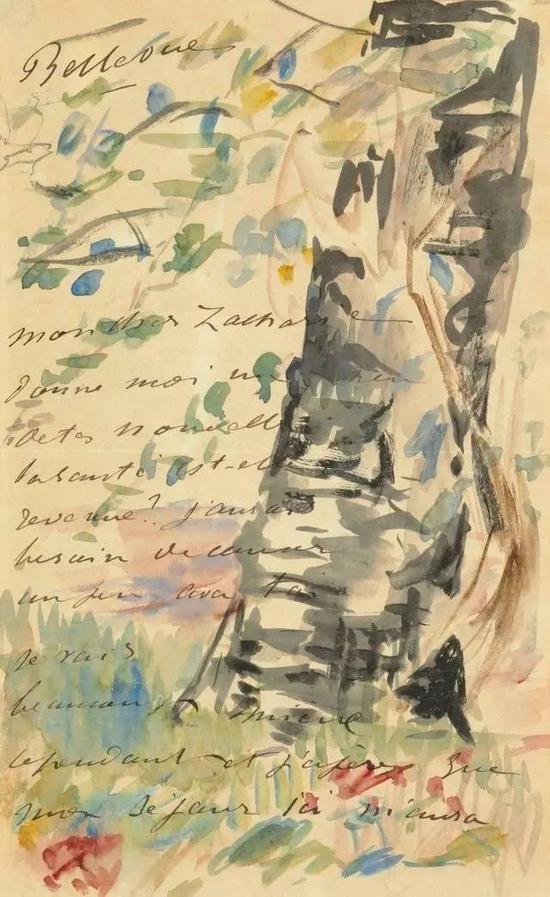 Bellevue
mon cher Zacharie
donne moi un
de tes nouvelles
la santé est-elle
revenue? j'aurais
besoin de causer
un peu avec toi
je vais
beaucoup mieux
cependant et j'espère que
mon séjour ici m'aura